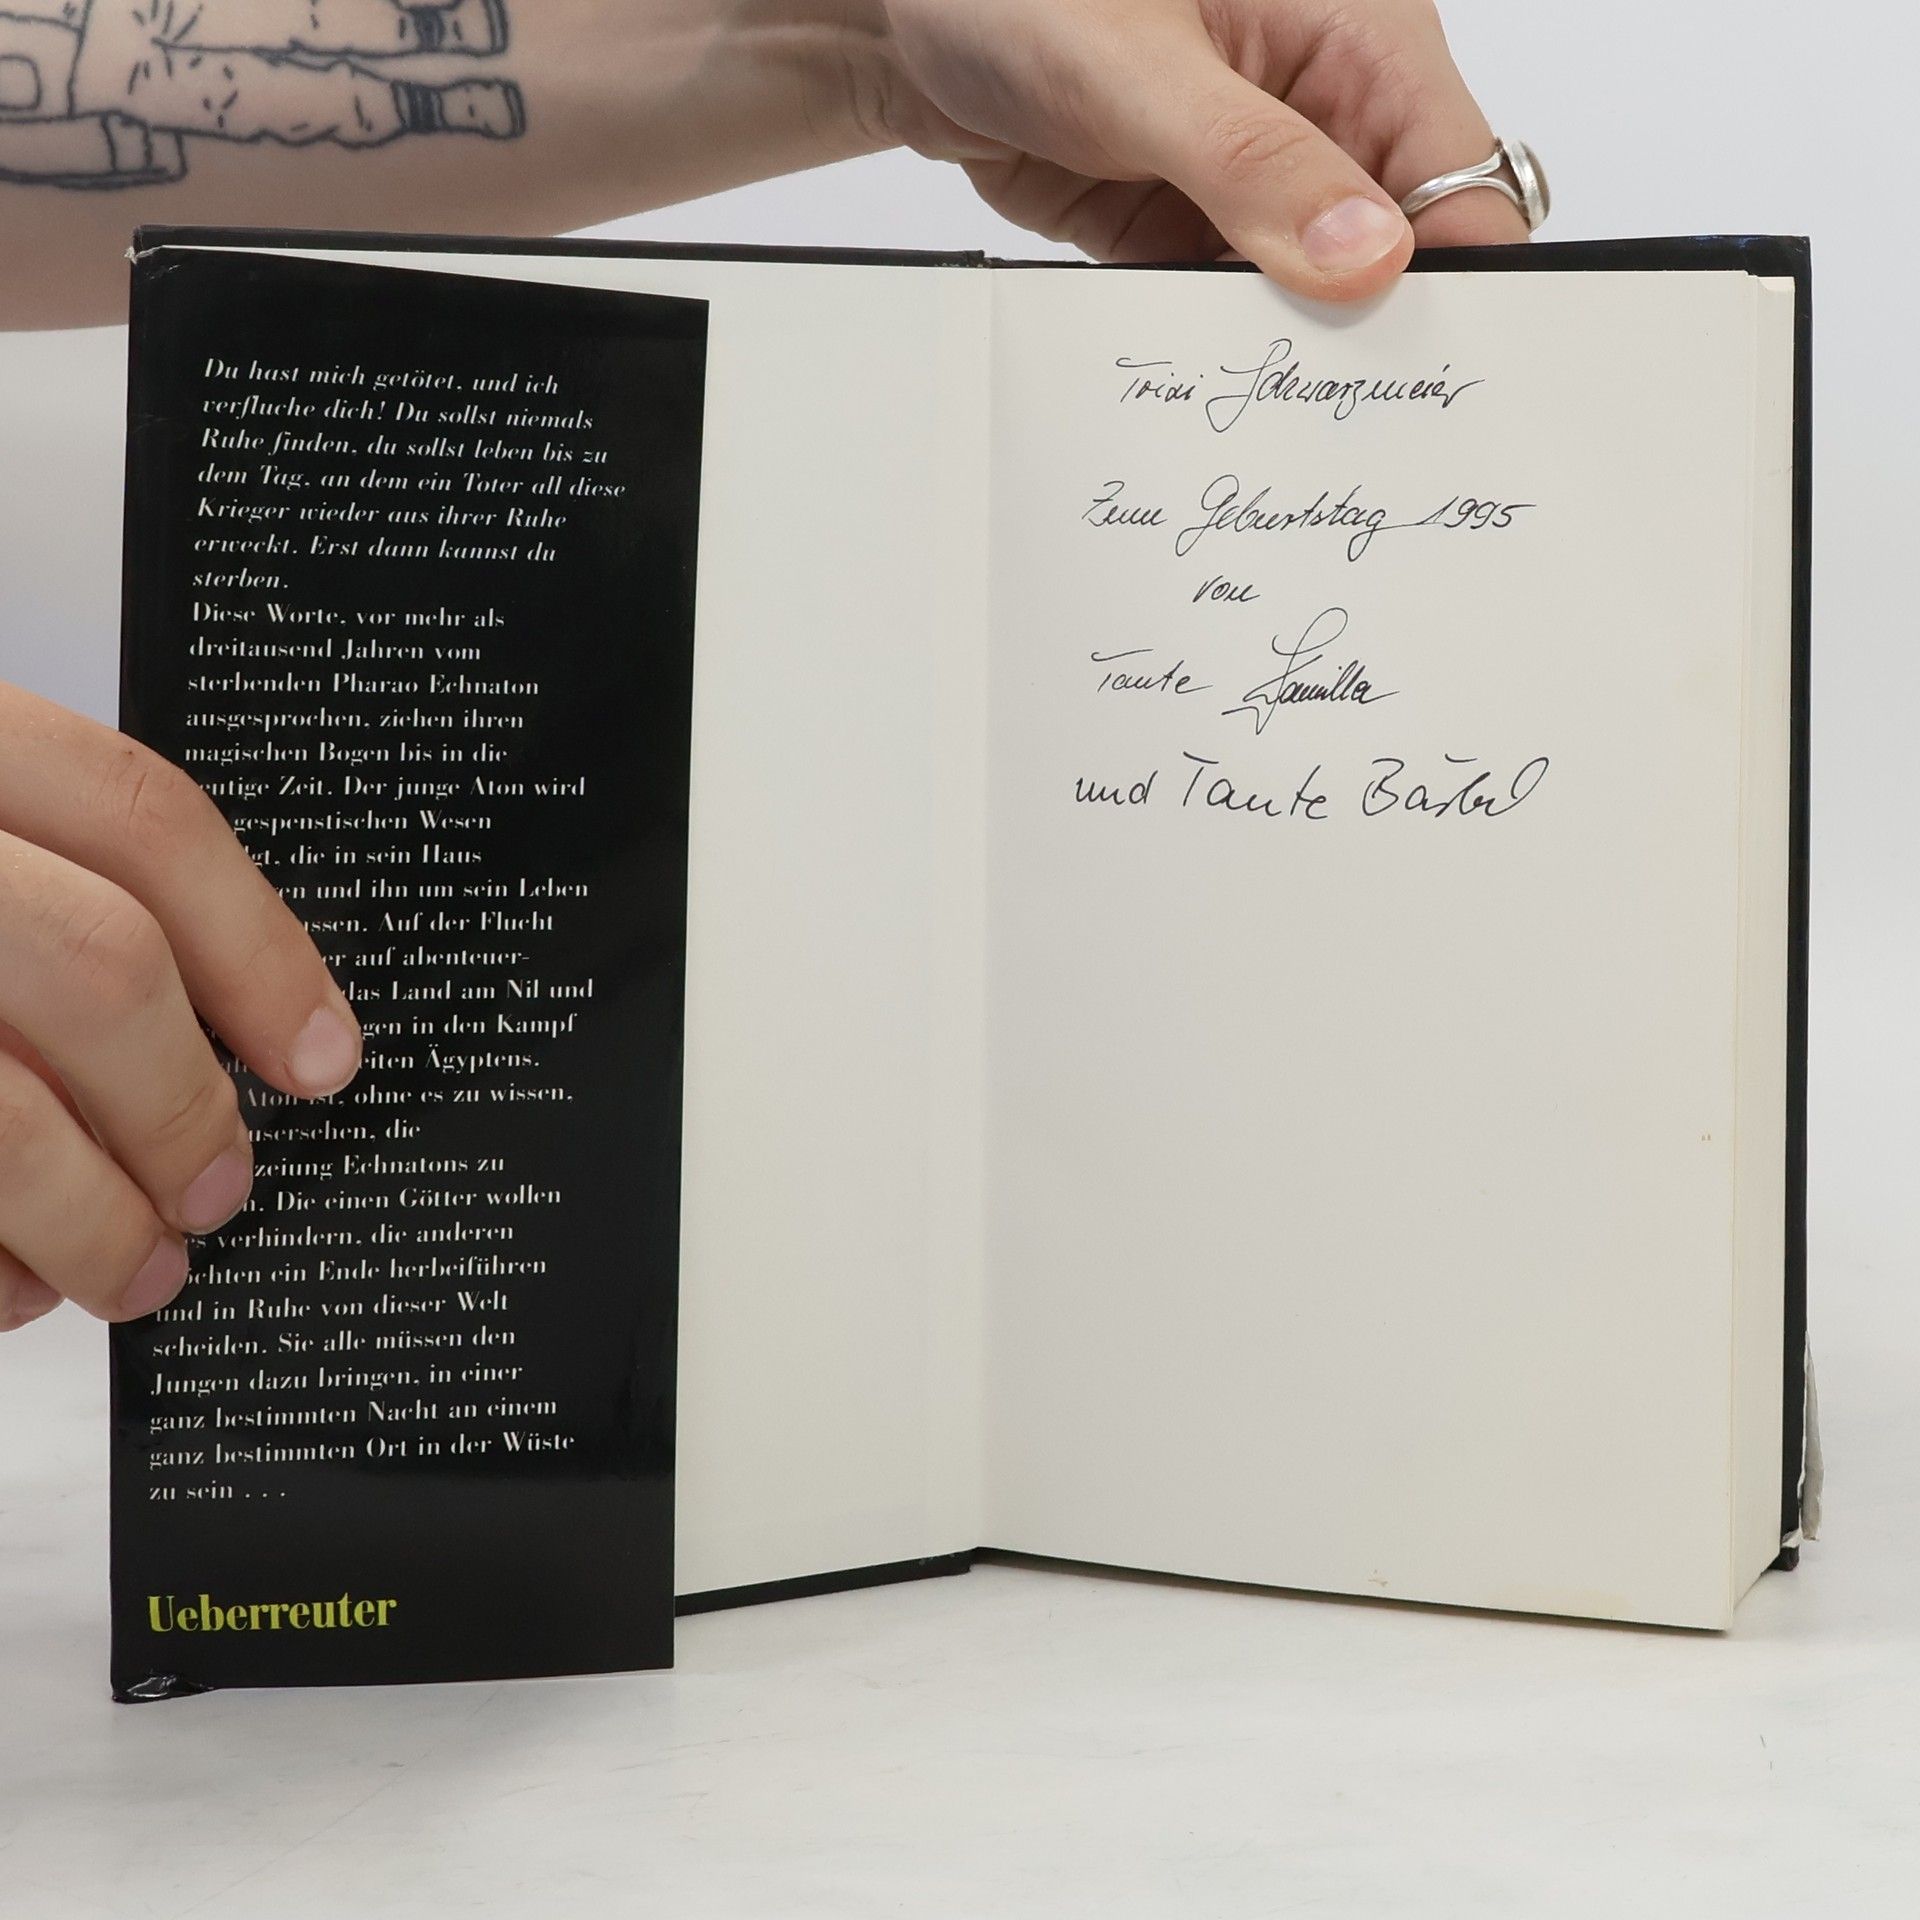 Du hast mich getötet, und ich
verfluche dich! Du sollst niemals
Ruhe finden, du sollst leben bis zu
dem Tag, an dem ein Toter all diese
Krieger wieder aus ihrer Ruhe
erweckt. Erst dann kannst du
sterben.
Diese Worte, vor mehr als
dreitausend Jahren vom
sterbenden Pharao Echnaton
ausgesprochen, ziehen ihren
magischen Bogen bis in die
Zeit. Der junge Aton wird
gespenstischen Wesen
die in sein Haus
und ihn um sein Leben
Auf der Flucht
auf abenteuer-
das Land am Nil und
in den Kampf
Ägyptens.
Aton ist, ohne es zu wissen,
die
Echnatons zu
Die einen Götter wollen
es verhindern, die anderen
ein Ende herbeiführen
und in Ruhe von dieser Welt
scheiden. Sie alle müssen den
Jungen dazu bringen, in einer
ganz bestimmten Nacht an einem
ganz bestimmten Ort in der Wüste
zu sein . . .
Ueberreuter
Trixi Schwarzmeier
Zum Geburtstag 1995
von
Tante Kamilla
und Tante Bärbel